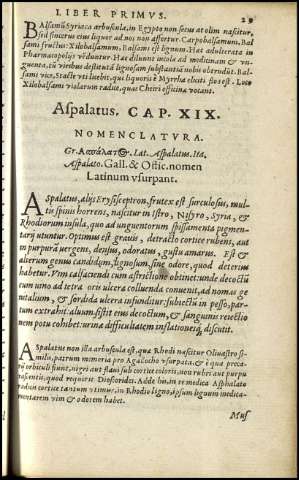 LIBER PRIMVS. 29
Balsamũ Syriaca arbuscula, in Egypto non secus at olim nascitur,
sed sincerus eius liquor ad nos non affertur. Carpobalsamum, Bal
sami fructus: Xilobalsamum, Balsami est lignum. Hæc adulterata in
Pharmacopolijs vēduntur. Hæc diluunt incolæ ad medicinam & vn
guenta, tũ viribus destitutã lignosam substantiã nobis obtrudunt. Bal
sami vice, Stacte vti licebit, qui liquoris è Myrrha eliciti flos est. Loco
Xilobalsami violarum radix, quas Cheiri officinæ vocant.
Aspalatus. CAP. XIX.
NOMENCLATVRA.
Gr. Ασπάλατος. Lat. Aspalatus. Ita.
Aspalato. Gall. & Offic. nomen
Latinum vsurpant.
ASpalatus, alijs Erysisceptron, frutex est surculosus, mul-
tis spinis horrens, nascitur in Istro, Nisyro, Syria, &
Rhodiorum insula, quo ad vnguentorum spissamenta pigmen-
tarij vtuntur. Optimus est grauis, detracto cortice rubens, aut
in purpurã vergens, densus, odoratus, gustu amarus. Est &
alterum genus candidum, lignosum, sine odore, quod deterius
habetur. Vim calfaciendi cum astrictione obtinet: vnde decoctũ
cum vino ad tetra oris vlcera colluenda conuenit, ad nomas ge
nitalium, & sordida vlcera infunditur: subiectũ in pesso, par-
tum extrahit: aluum sistit eius decoctum, & sanguinis reiectio
nem potu cohibet: vrinæ difficultatem inflationesq; discutit.
ASpalatus non illa arbuscula est, quæ Rhodi nascitur Oliuastro si-
milis, patrum memoria pro Agalocho vsurpata, & è qua preca-
rij orbiculi fiunt, nigri aut flaui sub cortice coloris, non rubri aut purpu
rascentis, quod requirit Dioscorides. Adde hîc, in re medica Aspalato
radicis cortice tantum vtimur, in Rhodio ligno, ipsum lignum medic-
mentarem vim & odorem habet.
Mus